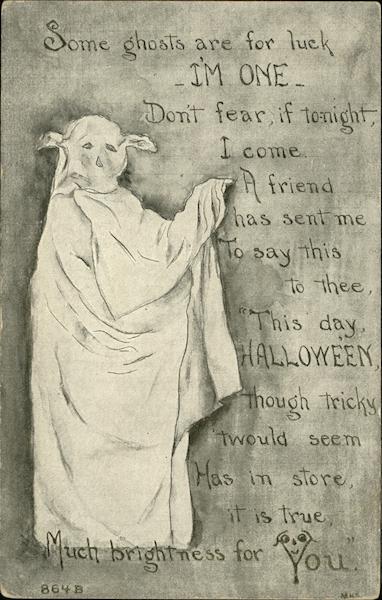 Some ghosts are for luck
- I'M ONE -
Don't fear, if tonight,
I come.
A friend
has sent me
To say this
to thee,
"This day,
HALLOWEEN,
though tricky
'twould seem
Has in store,
it is true,
Much brightness for You."
864B